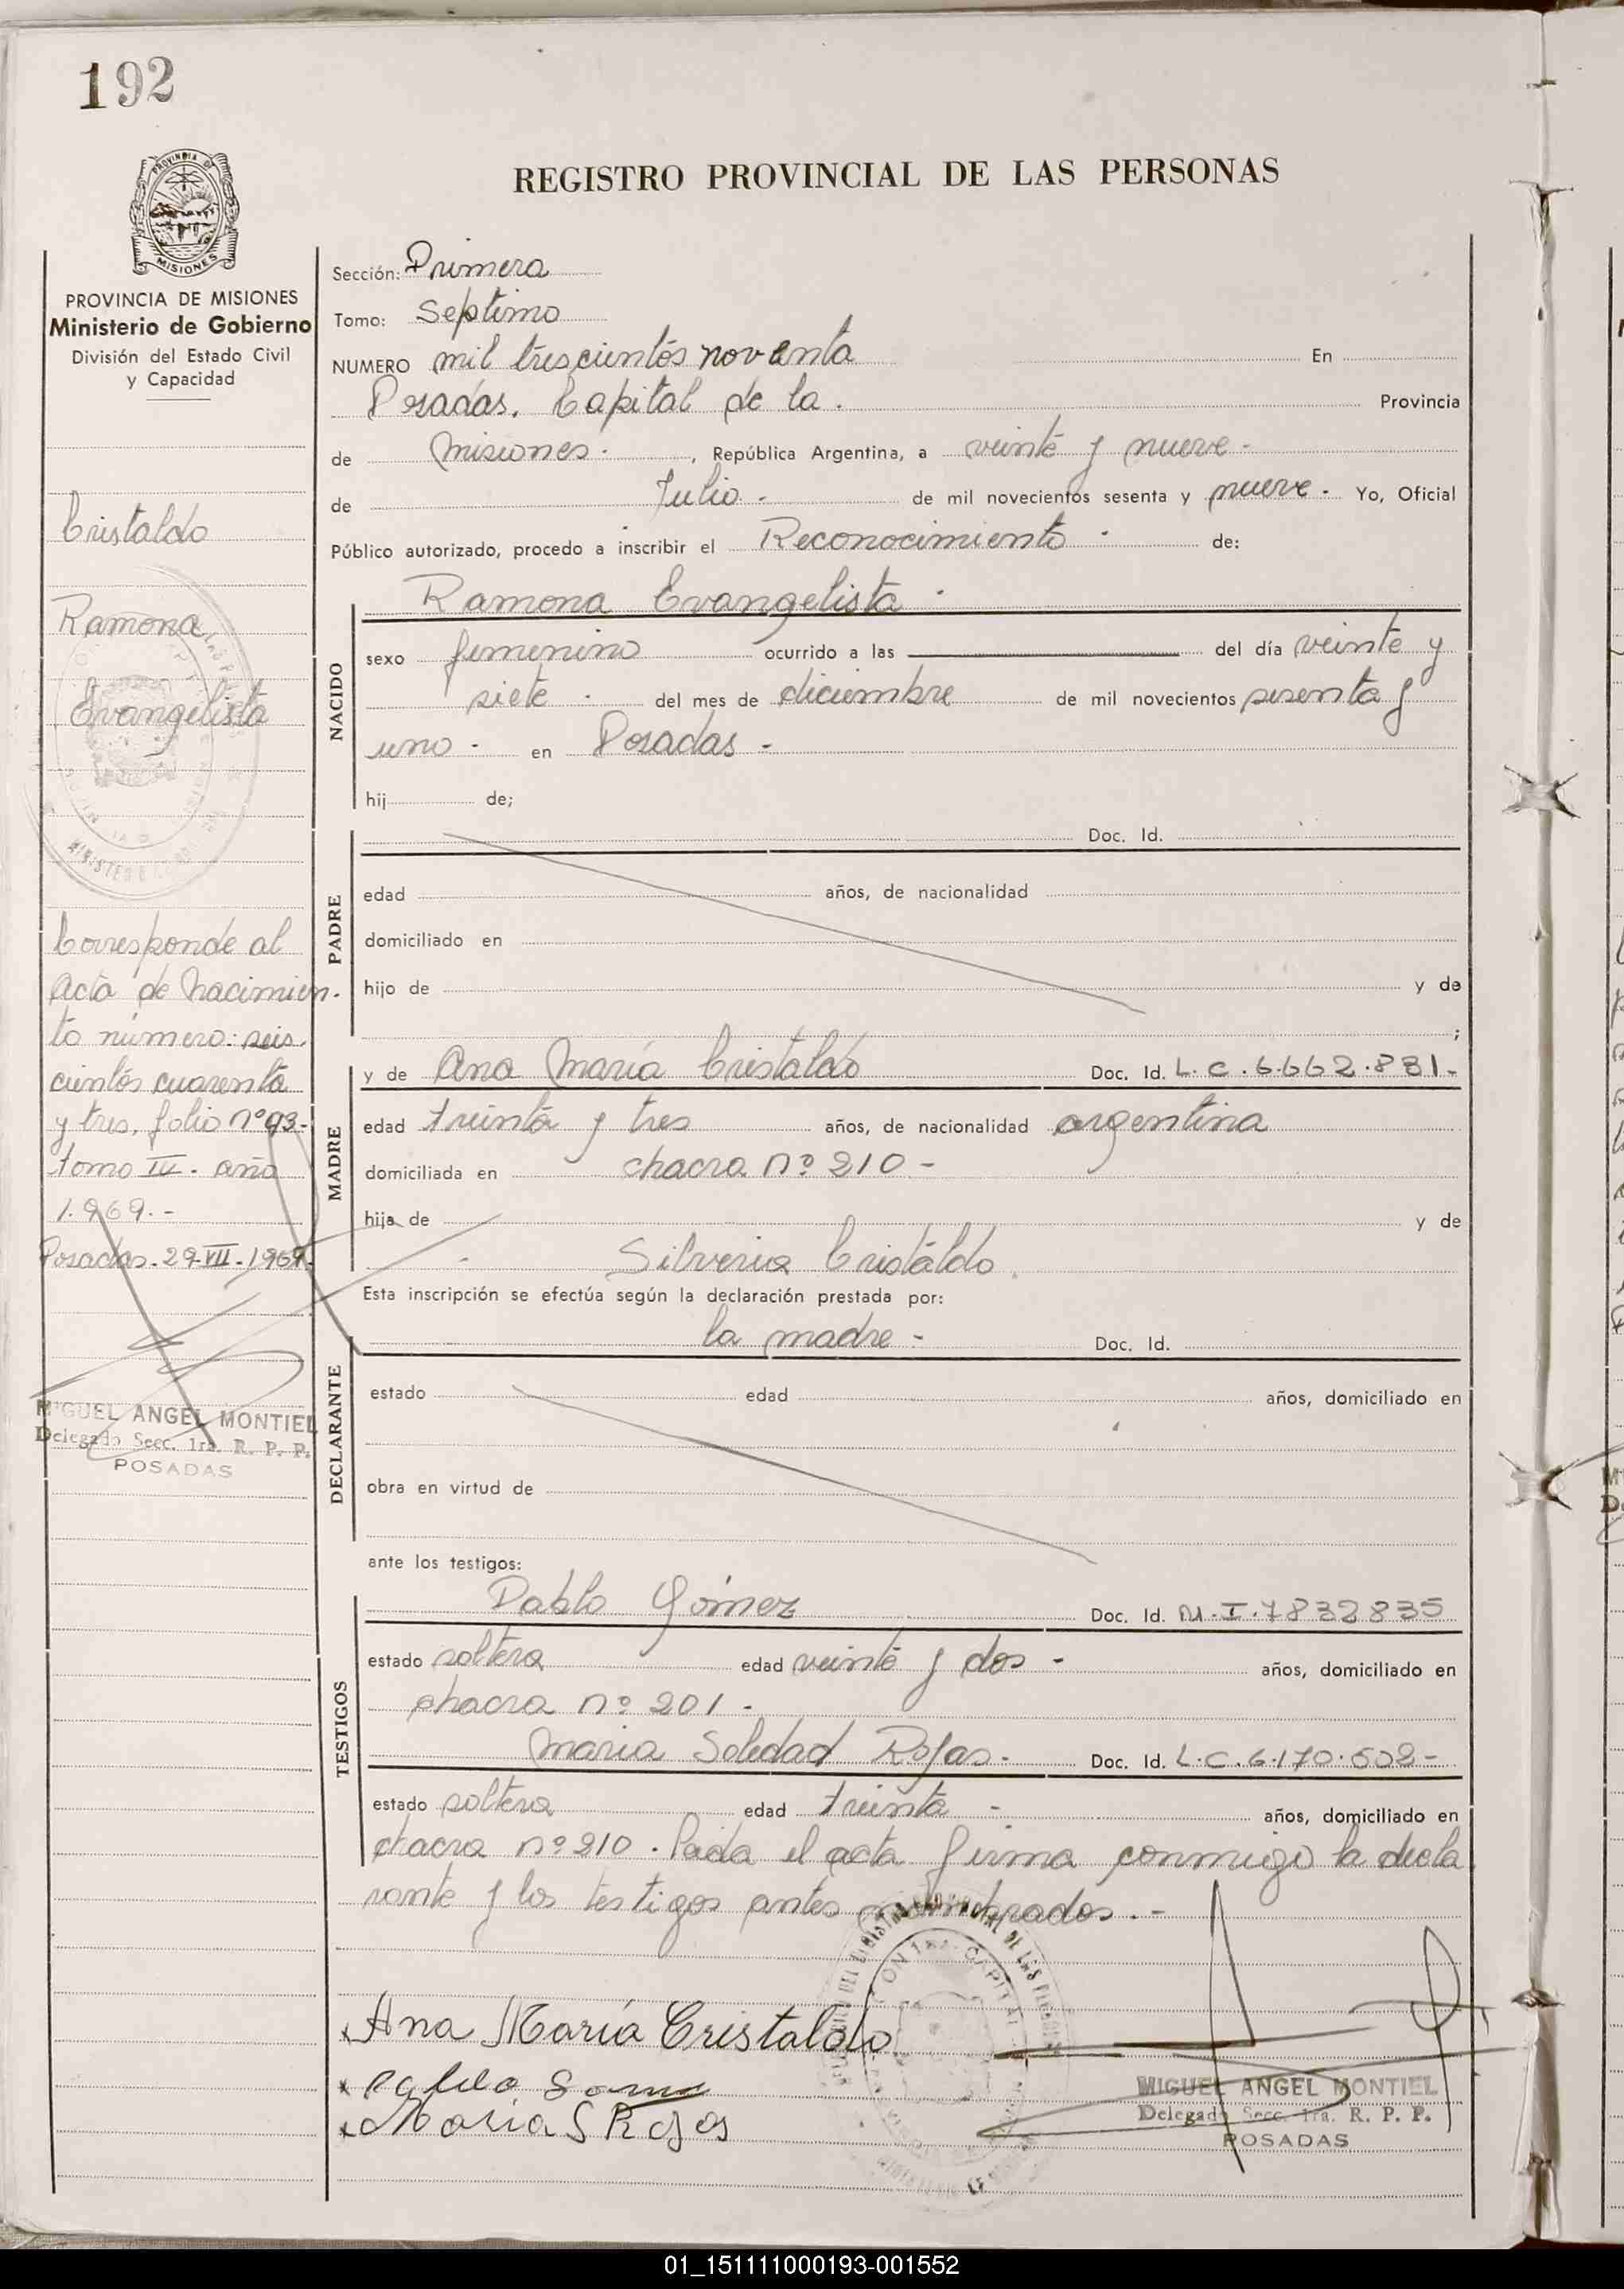 192
REGISTRO PROVINCIAL DE LAS PERSONAS
PROVINCIA DE MISIONES
Ministerio de Gobierno
División del Estado Civil
y Capacidad
Cristaldo
Ramona
Evangelista
Corresponde al
Acta de Nacimien-
to número: seis-
cientos cuarenta
y tres, folio nº 93-
tomo IV. año
1.969.-
Posadas. 29-VII-1969.
MIGUEL ANGEL MONTIEL
Delegado Secc. 1ra. R. P. P.
POSADAS
Sección: Primera
Tomo: Septimo
NUMERO mil trescientos noventa En
Posadas. Capital de la. Provincia
de Misiones. , República Argentina, a veinte y nueve-
de Julio - de mil novecientos sesenta y nueve - Yo, Oficial
Público autorizado, procedo a inscribir el Reconocimiento - de:
Ramona Evangelista -
NACIDO
sexo femenino ocurrido a las del día veinte y
siete - del mes de diciembre de mil novecientos sesenta y
uno - en Posadas -
hij de;
PADRE
Doc. Id.
edad años, de nacionalidad
domiciliado en
hijo de y de
;
MADRE
y de Ana María Cristaldo Doc. Id. L. C. 6.662.831-
edad treinta y tres años, de nacionalidad argentina
domiciliada en chacra nº 210 -
hija de y de
Silveria Cristaldo
Esta inscripción se efectúa según la declaración prestada por:
DECLARANTE
la madre - Doc. Id.
estado edad años, domiciliado en
obra en virtud de
ante los testigos:
TESTIGOS
Pablo Gómez Doc. Id. M. I. 7832835
estado soltero edad veinte y dos - años, domiciliado en
chacra nº 201 -
Maria Soledad Rojas- Doc. Id. L. C. 6.170.502-
estado soltera edad treinta - años, domiciliado en
chacra nº 210. Leida el acta firma conmigo la decla
rante y los testigos antes nombrados.-
Ana María Cristaldo
Pablo Gomez
Maria S Rojas
MIGUEL ANGEL MONTIEL
Delegado Secc. 1ra. R. P. P.
POSADAS
01_151111000193-001552